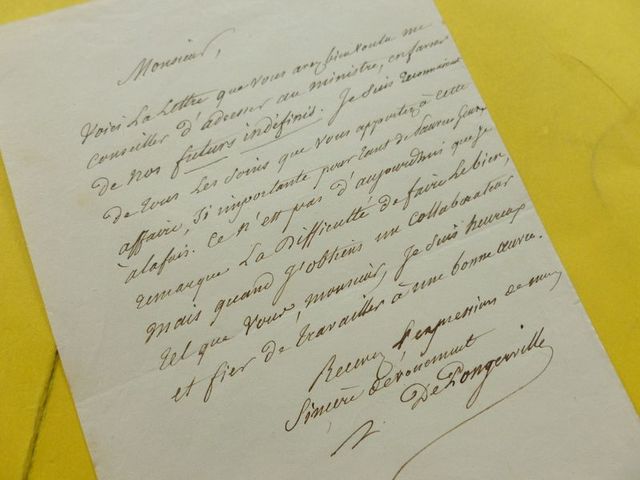 Monsieur,
Voici la lettre que vous avez bien voulu me
conseiller d'adresser au ministre, en faveur
de nos futurs indéfinis. Je suis reconnaissant
de tous les soins que vous apportez à cette
affaire, si importante pour tant de pauvres gens,
à la fois. Ce n'est pas d'aujourd'hui que je
remarque la difficulté de faire le bien,
mais quand j'obtiens un collaborateur
tel que vous, monsieur, je suis heureux
et fier de travailler à une bonne œuvre.
Recevez l'expression de mon
sincère dévouement
De Pongerville